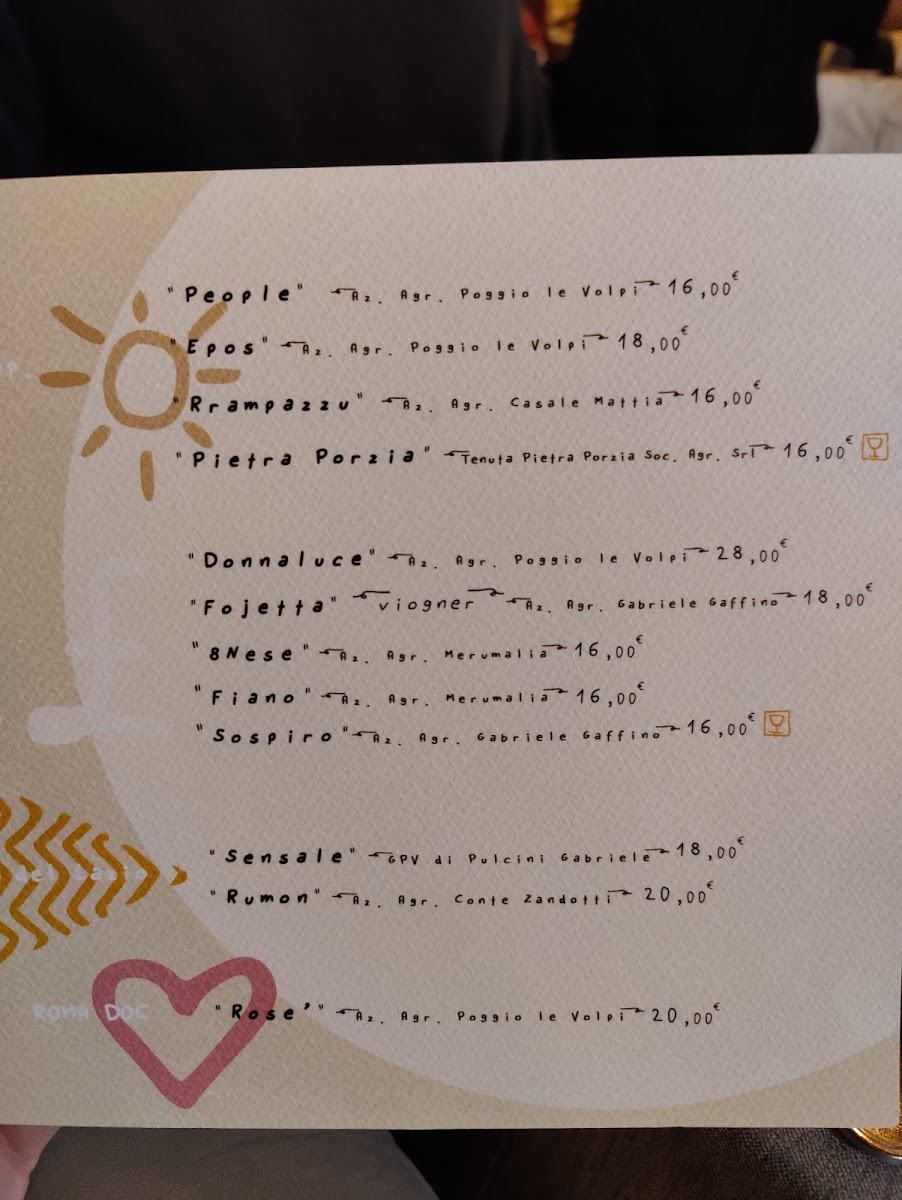 "People" Az. Agr. Poggio le Volpi 16,00€
"Epos" Az. Agr. Poggio le Volpi 18,00€
"Rrampazzu" Az. Agr. Casale Mattia 16,00€
"Pietra Porzia" Tenuta Pietra Porzia Soc. Agr. Srl 16,00€
"Donnaluce" Az. Agr. Poggio le Volpi 28,00€
"Fojetta" viogner Az. Agr. Gabriele Gaffino 18,00€
"8Nese" Az. Agr. Merumalia 16,00€
"Fiano" Az. Agr. Merumalia 16,00€
"Sospiro" Az. Agr. Gabriele Gaffino 16,00€
"Sensale" GPV di Pulcini Gabriele 18,00€
del Lazio
"Rumon" Az. Agr. Conte Zandotti 20,00€
ROMA DOC
"Rose'" Az. Agr. Poggio le Volpi 20,00€